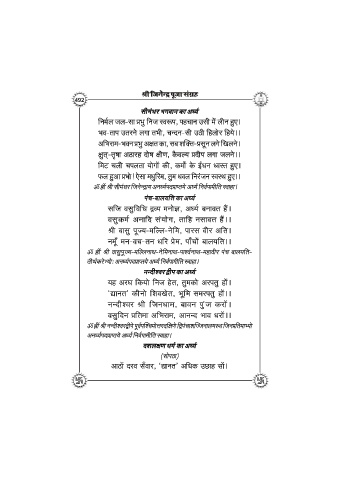 श्री जिनेन्द्र पूजा संग्रह
492
सीमंधर भगवान का अर्घ्य
निर्मल जल-सा प्रभु निज स्वरूप, पहचान उसी में लीन हुए।
भव-ताप उतरने लगा तभी, चन्दन-सी उठी हिलोर हिये।।
अभिराम-भवन प्रभु अक्षत का, सब शक्ति-प्रसून लगे खिलने।
क्षुत्-तृषा अठारह दोष क्षीण, कैवल्य प्रदीप लगा जलने।।
मिट चली चपलता योगों की, कर्मों के ईंधन ध्वस्त हुए।
फल हुआ प्रभो! ऐसा मधुरिम, तुम धवल निरंजन स्वस्थ हुए।।
ॐ ह्रीं श्री सीमंधर जिनेन्द्राय अनर्घ्यपदप्राप्तये अर्घ्यं निर्वपामीति स्वाहा।
पंच-बालयति का अर्घ्य
सजि वसुविधि द्रव्य मनोज्ञ, अर्घ्य बनावत हैं।
वसुकर्म अनादि संयोग, ताहि नसावत हैं।।
श्री वासु पूज्य-मल्लि-नेमि, पारस वीर अति।
नमूँ मन-वच-तन धरि प्रेम, पाँचों बालयति।।
ॐ ह्रीं श्री वासुपूज्य-मल्लिनाथ-नेमिनाथ-पार्श्वनाथ-महावीर पंच बालयति-
तीर्थंकरेभ्यो: अनर्घ्यपदप्राप्तये अर्घ्यं निर्वपामीति स्वाहा।
नन्दीश्वर द्वीप का अर्घ्य
यह अरघ कियो निज हेत, तुमको अरपतु हों।
'द्यानत' कीनो शिवखेत, भूमि समरपतु हों।।
नन्दीश्वर श्री जिनधाम, बावन पुंज करों।
वसुदिन प्रतिमा अभिराम, आनन्द भाव धरों।।
ॐ ह्रीं श्री नन्दीश्वरद्वीपे पूर्वपश्चिमोत्तरदक्षिणे द्विपंचाशज्जिनालयस्थ जिनप्रतिमाभ्यो
अनर्घ्यपदप्राप्तये अर्घ्यं निर्वपामीति स्वाहा।
दशलक्षण धर्म का अर्घ्य
(सोरठा)
आठों दरव सँवार, 'द्यानत' अधिक उछाह सों।